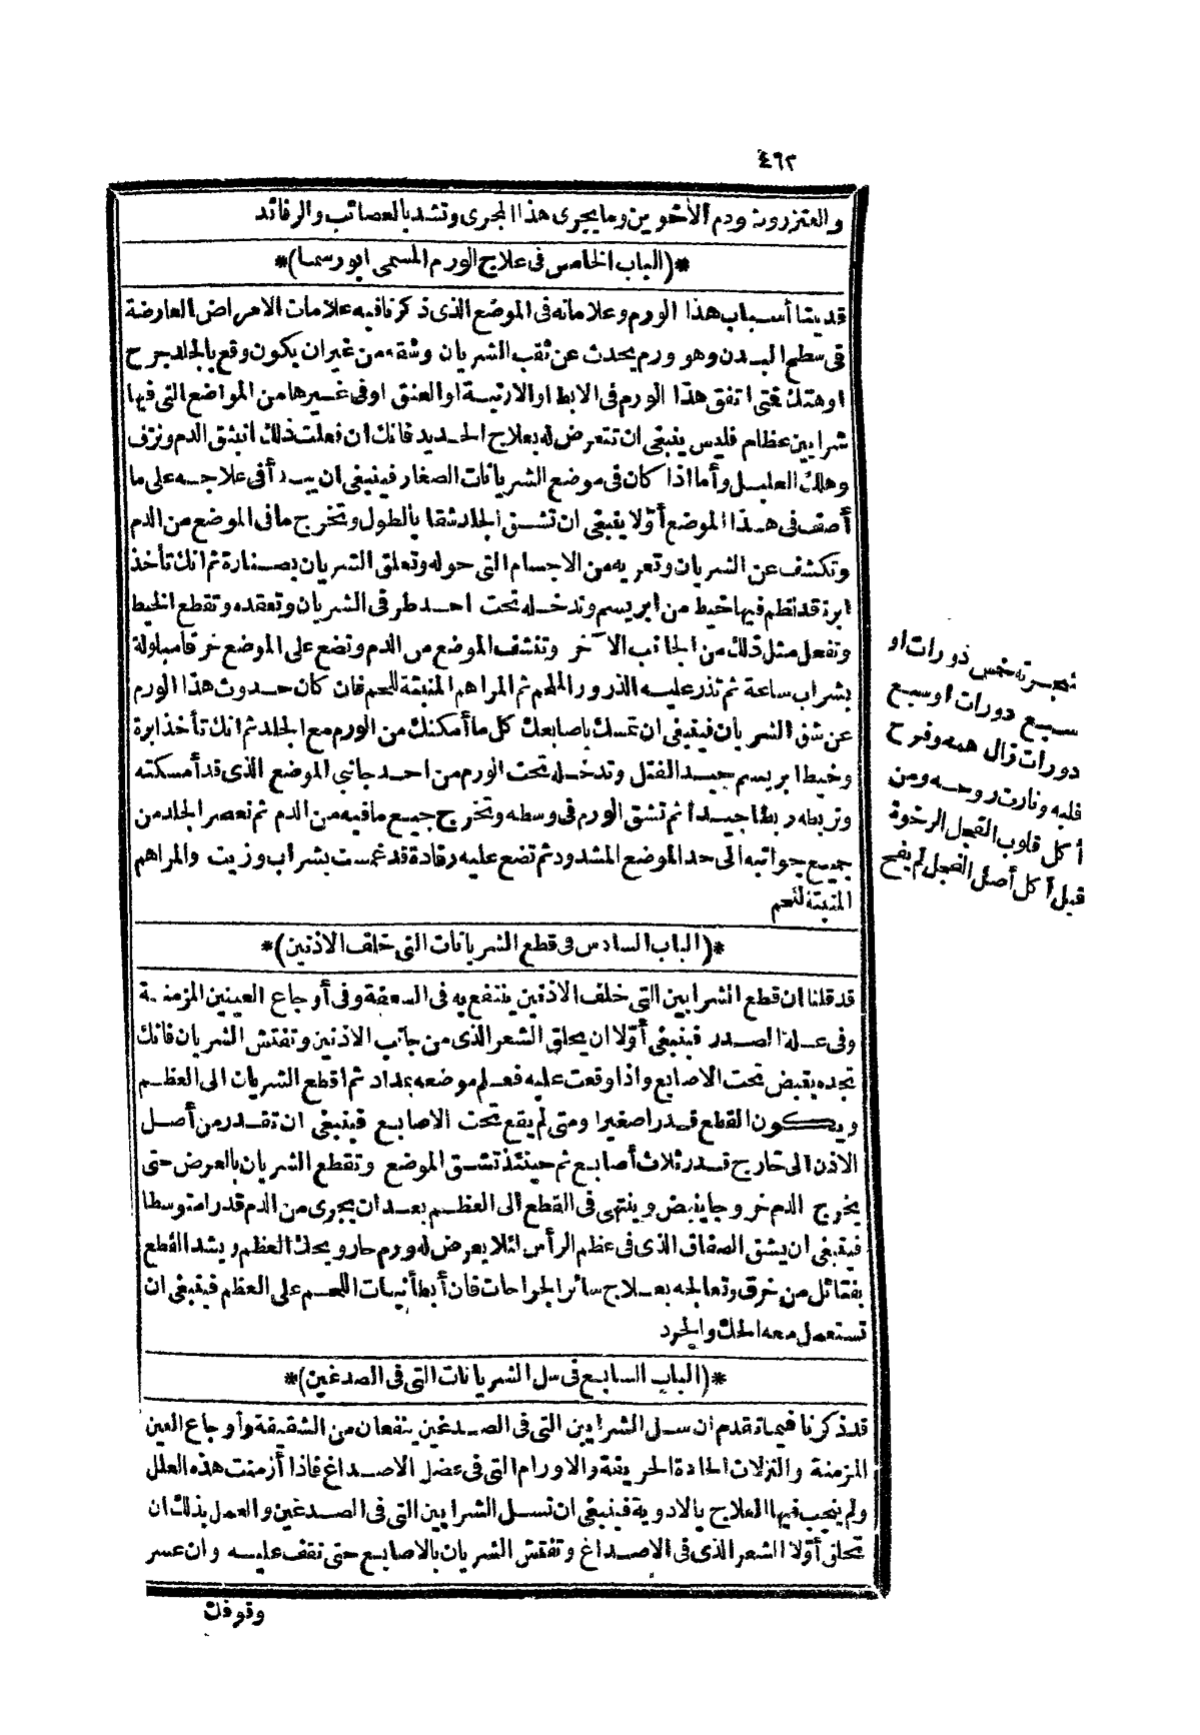 ٤٦٢
والعنزروت ودم الأخوين وما يجرى هذا المجرى وتشد بالعصائب والرفائد
*(الباب الخامس فى علاج الورم المسمى ابورسما)*
قد بينا أسباب هذا الورم وعلاماته فى الموضع الذى ذكرنا فيه علامات الامراض العارضة
فى سطح البدن وهو ورم يحدث عن ثقب الشريان وشقه من غير ان يكون وقع بالجلد جرح
اوهتك فمتى اتفق هذا الورم فى الابط او الارنبة او العنق اوفى غيرها من المواضع التى فيها
شرايين عظام فليس ينبغى ان تتعرض له بعلاج الحديد فانك ان فعلت ذلك انبثق الدم ونزف
وهلك العليل وأما اذا كان فى موضع الشريانات الصغار فينبغى ان يبدأ فى علاجه على ما
أصف فى هذا الموضع أوّلا ينبغى ان تشق الجلد شقا بالطول وتخرج ما فى الموضع من الدم
وتكشف عن الشريان وتعريه من الاجسام التى حوله وتعلق الشريان بصنارة ثم انك تأخذ
ابرة قد نظم فيها خيط من ابريسم وتدخله تحت احد طرفى الشريان وتعقده وتقطع الخيط
وتفعل مثل ذلك من الجانب الآخر وتنشف الموضع من الدم وتضع على الموضع خرقا مبلولة
بشراب ساعة ثم تذر عليه الذرور الملحم ثم المراهم المنبتة للحم فان كان حدوث هذا الورم
عن شق الشريان فينبغى ان تمسك باصابعك كل ما أمكنك من الورم مع الجلد ثم انك تأخذ ابرة
وخيط ابريسم جيد الفتل وتدخله تحت الورم من احد جانبى الموضع الذى قد أمسكته
وتربطه ربطا جيدا ثم تشق الورم فى وسطه وتخرج جميع ما فيه من الدم ثم تعصر الجلد من
جميع جوانبه الى حد الموضع المشدود ثم تضع عليه رفادة قد غمست بشراب وزيت والمراهم
المنبتة للحم
*(الباب السادس فى قطع الشريانات التى خلف الاذنين)*
قد قلنا ان قطع الشرايين التى خلف الاذنين ينتفع به فى السعفة وفى أوجاع العينين المزمنة
وفى علة الصدر فينبغى أوّلا ان يحلق الشعر الذى من جانب الاذنين وتفتش الشريان فانك
تجده بقبض تحت الاصابع واذا وقعت عليه فعلم موضعه بمداد ثم اقطع الشريان الى العظم
ويكون القطع قدرا صغيرا ومتى لم يقع تحت الاصابع فينبغى ان تقدر من أصل
الاذن الى خارج قدر ثلاث أصابع ثم حينئذ تشق الموضع وتقطع الشريان بالعرض حتى
يخرج الدم خروجا ينبض وينتهى فى القطع الى العظم بعد ان يجرى من الدم قدرا متوسطا
فينبغى ان يشق الصفاق الذى فى عظم الرأس لئلا يعرض له ورم حار ويحك العظم ويشد القطع
بفتائل من خرق وتعالجه بعلاج سائر الجراحات فان أبطأ نبات اللحم على العظم فينبغى ان
تستعمل معه الحك والجرد
*(الباب السابع فى سل الشريانات التى فى الصدغين)*
قد ذكرنا فيما تقدم ان سل الشرايين التى فى الصدغين ينفعان من الشقيقة وأوجاع العين
المزمنة والنزلات الحادة الحريفة والاورام التى فى عضل الاصداغ فاذا أزمنت هذه العلل
ولم ينجب فيها العلاج بالادوية فينبغى ان تسل الشرايين التى فى الصدغين والعمل بذلك ان
تحلق أوّلا الشعر الذى فى الاصداغ وتفتش الشريان بالاصابع حتى تقف عليه وان عسر
وقوفك
خمس ذورات او
سبع دورات اوسبع
دورات زال همه وفرح
قلبه روحه ومن
أكل قلوب الفجل الرخوة
قبل أكل أصل الفجل لم يفح